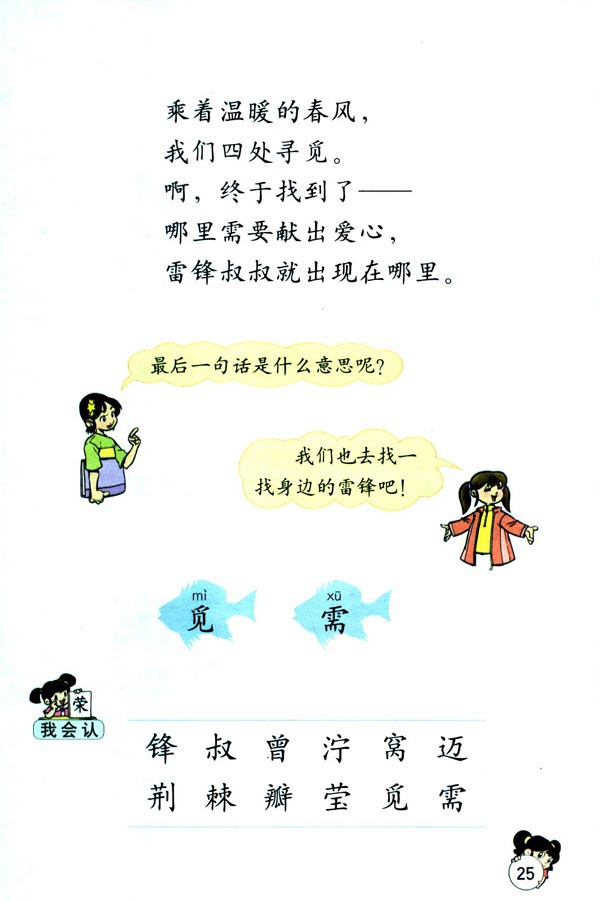 乘着温暖的春风，
我们四处寻觅。
啊，终于找到了——
哪里需要献出爱心，
雷锋叔叔就出现在哪里。
最后一句话是什么意思呢？
我们也去找一
找身边的雷锋吧！
mì xū
觅 需
荣
我会认
锋 叔 曾 泞 窝 迈
荆 棘 瓣 莹 觅 需
25